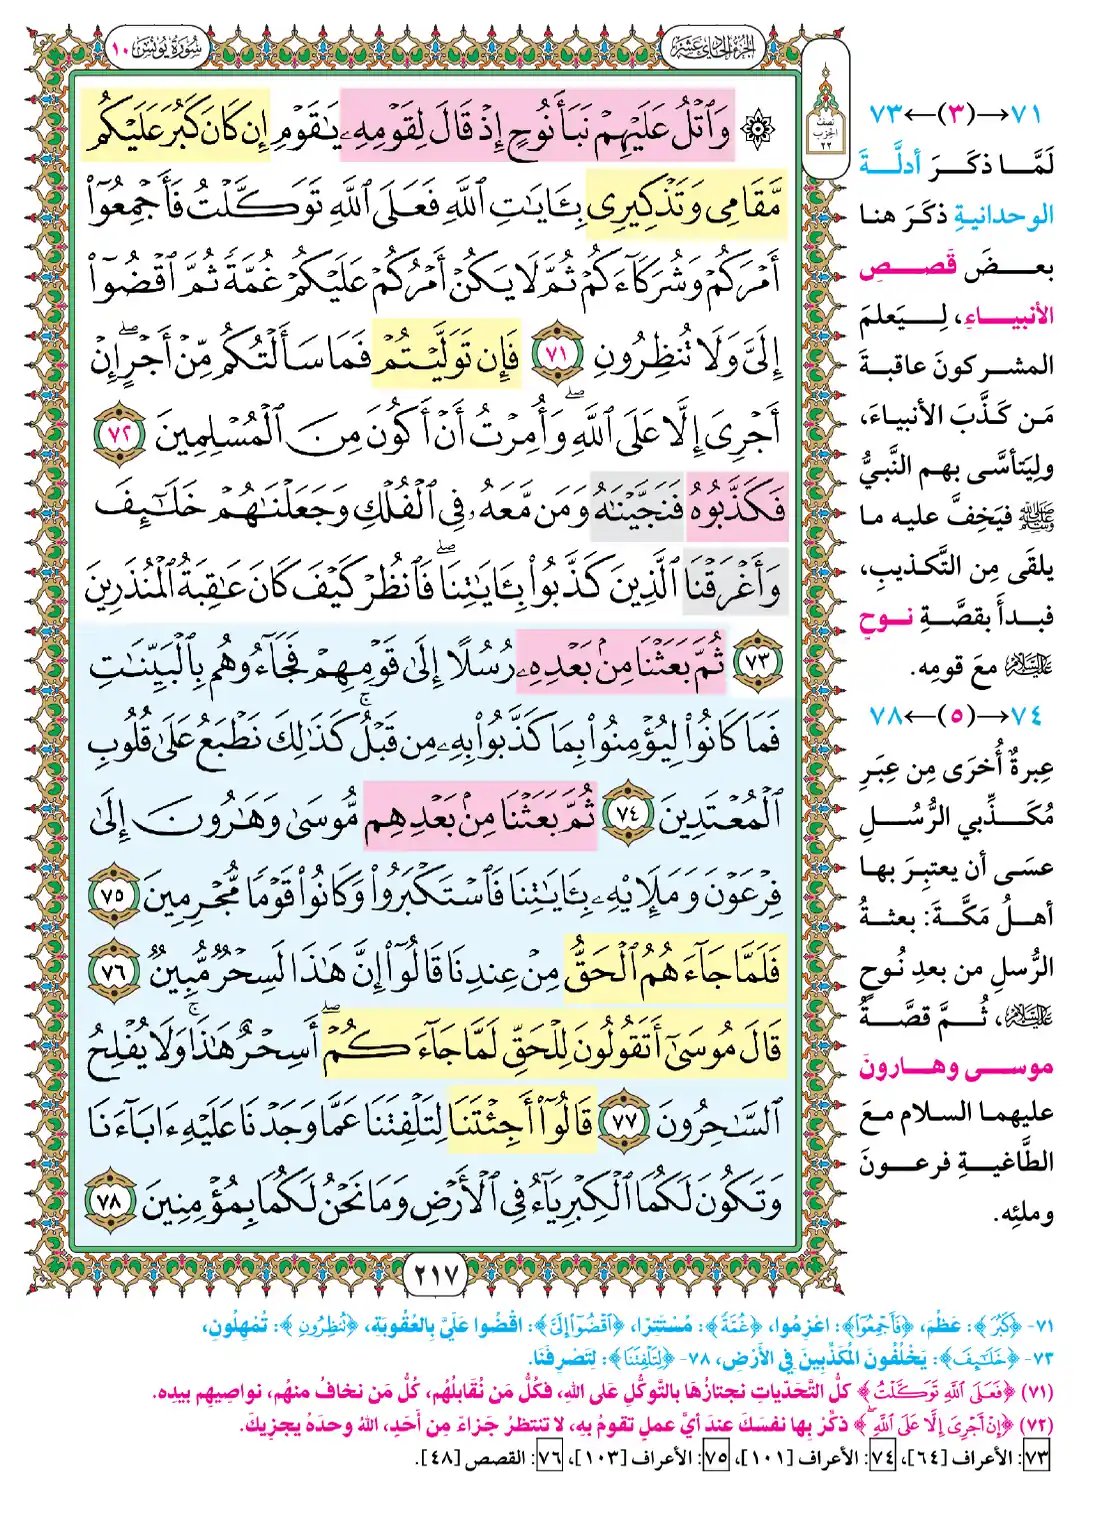 سُورَةُ يُونُسَ ١٠
الجُزْءُ الحَادِي عَشَرَ
نصف
الحزب
٢٢
۞ وَٱتْلُ عَلَيْهِمْ نَبَأَ نُوحٍ إِذْ قَالَ لِقَوْمِهِۦ يَٰقَوْمِ إِن كَانَ كَبُرَ عَلَيْكُم
مَّقَامِى وَتَذْكِيرِى بِـَٔايَٰتِ ٱللَّهِ فَعَلَى ٱللَّهِ تَوَكَّلْتُ فَأَجْمِعُوٓا۟
أَمْرَكُمْ وَشُرَكَآءَكُمْ ثُمَّ لَا يَكُنْ أَمْرُكُمْ عَلَيْكُمْ غُمَّةً ثُمَّ ٱقْضُوٓا۟
إِلَىَّ وَلَا تُنظِرُونِ ٧١ فَإِن تَوَلَّيْتُمْ فَمَا سَأَلْتُكُم مِّنْ أَجْرٍ ۖ إِنْ
أَجْرِىَ إِلَّا عَلَى ٱللَّهِ ۖ وَأُمِرْتُ أَنْ أَكُونَ مِنَ ٱلْمُسْلِمِينَ ٧٢
فَكَذَّبُوهُ فَنَجَّيْنَٰهُ وَمَن مَّعَهُۥ فِى ٱلْفُلْكِ وَجَعَلْنَٰهُمْ خَلَٰٓئِفَ
وَأَغْرَقْنَا ٱلَّذِينَ كَذَّبُوا۟ بِـَٔايَٰتِنَا ۖ فَٱنظُرْ كَيْفَ كَانَ عَٰقِبَةُ ٱلْمُنذَرِينَ
٧٣ ثُمَّ بَعَثْنَا مِنۢ بَعْدِهِۦ رُسُلًا إِلَىٰ قَوْمِهِمْ فَجَآءُوهُم بِٱلْبَيِّنَٰتِ
فَمَا كَانُوا۟ لِيُؤْمِنُوا۟ بِمَا كَذَّبُوا۟ بِهِۦ مِن قَبْلُ ۚ كَذَٰلِكَ نَطْبَعُ عَلَىٰ قُلُوبِ
ٱلْمُعْتَدِينَ ٧٤ ثُمَّ بَعَثْنَا مِنۢ بَعْدِهِم مُّوسَىٰ وَهَٰرُونَ إِلَىٰ
فِرْعَوْنَ وَمَلَإِي۟هِۦ بِـَٔايَٰتِنَا فَٱسْتَكْبَرُوا۟ وَكَانُوا۟ قَوْمًا مُّجْرِمِينَ ٧٥
فَلَمَّا جَآءَهُمُ ٱلْحَقُّ مِنْ عِندِنَا قَالُوٓا۟ إِنَّ هَٰذَا لَسِحْرٌ مُّبِينٌ ٧٦
قَالَ مُوسَىٰٓ أَتَقُولُونَ لِلْحَقِّ لَمَّا جَآءَكُمْ ۖ أَسِحْرٌ هَٰذَا وَلَا يُفْلِحُ
ٱلسَّٰحِرُونَ ٧٧ قَالُوٓا۟ أَجِئْتَنَا لِتَلْفِتَنَا عَمَّا وَجَدْنَا عَلَيْهِ ءَابَآءَنَا
وَتَكُونَ لَكُمَا ٱلْكِبْرِيَآءُ فِى ٱلْأَرْضِ وَمَا نَحْنُ لَكُمَا بِمُؤْمِنِينَ ٧٨
٢١٧
٧١→(٣)←٧٣
لَمَّا ذكَرَ أدلَّةَ
الوحدانيةِ ذكَرَ هنا
بعضَ قَصصِ
الأنبياءِ، لِيَعلمَ
المشركونَ عاقبةَ
مَن كَذَّبَ الأنبياءَ،
ولِيَتأسَّى بهم النَّبيُّ
ﷺ فيَخِفَّ عليه ما
يلقَى مِن التَّكذيبِ،
فبدأَ بقصَّةِ نوحٍ
عَلَيْهِ السَّلَامُ معَ قومِه.
٧٤→(٥)←٧٨
عِبرةٌ أُخرَى مِن عِبَرِ
مُكَذِّبي الرُّسُلِ
عسَى أن يعتبِرَ بها
أهلُ مَكَّةَ: بعثةُ
الرُّسلِ من بعدِ نُوحٍ
عَلَيْهِ السَّلَامُ، ثُمَّ قصَّةُ
موسى وهارونَ
عليهما السلام معَ
الطَّاغيةِ فرعونَ
وملئِه.
٧١- ﴿كَبُرَ﴾: عَظُمَ، ﴿فَأَجْمِعُوٓا۟﴾: اعْزِمُوا، ﴿غُمَّةً﴾: مُسْتَتِرًا، ﴿ٱقْضُوٓا۟ إِلَىَّ﴾: اقْضُوا عَلَيَّ بِالعُقُوبَةِ، ﴿تُنظِرُونِ﴾: تُمْهِلُونِ،
٧٣- ﴿خَلَٰٓئِفَ﴾: يَخْلُفُونَ المُكَذِّبِينَ فِي الأَرْضِ، ٧٨- ﴿لِتَلْفِتَنَا﴾: لِتَصْرِفَنَا.
(٧١) ﴿فَعَلَى ٱللَّهِ تَوَكَّلْتُ﴾ كلُّ التَّحَدِّياتِ نجتازُهَا بالتَّوكُّلِ عَلى اللهِ، فكُلُّ مَن نُقَابلُهُم، كُلُّ مَن نخافُ منهُم، نواصِيهِم بيدِه.
(٧٢) ﴿إِنْ أَجْرِىَ إِلَّا عَلَى ٱللَّهِ ۖ﴾ ذكِّرْ بِها نفسَكَ عندَ أيِّ عملٍ تقومُ بِهِ، لا تنتظرُ جَزاءً مِن أحَدٍ، اللهُ وحدَهُ يجزِيكَ.
٧٣: الأعراف [٦٤]، ٧٤: الأعراف [١٠١]، ٧٥: الأعراف [١٠٣]، ٧٦: القصص [٤٨].